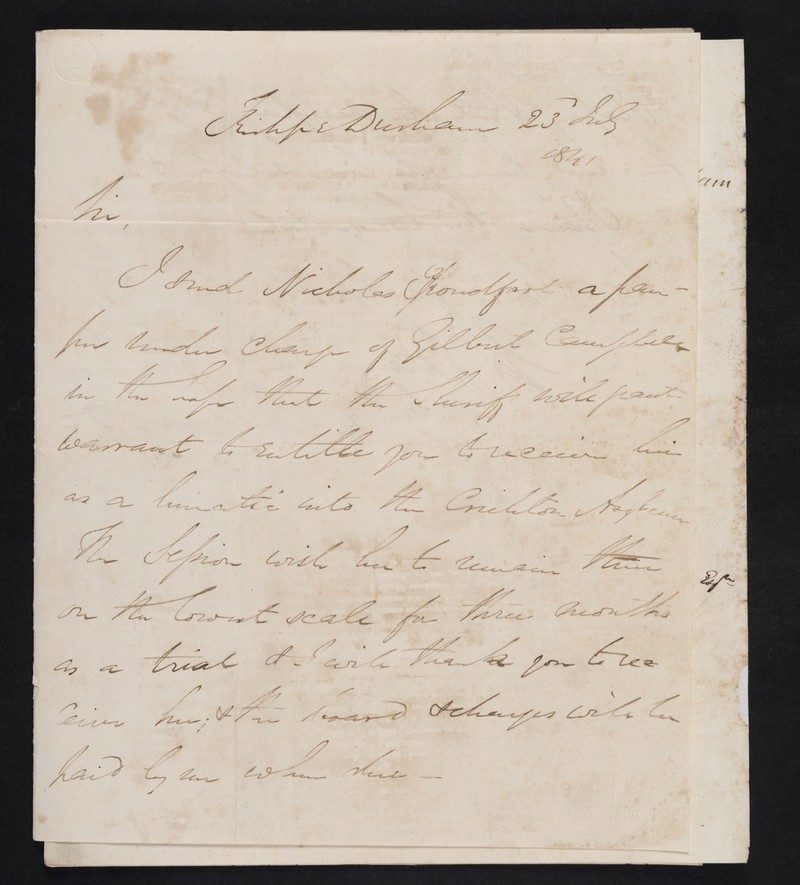 Kirkp: Durham 23 July
1841
Sir,
I send Nicholas a pau-
per under charge of Gilbert Campbell
in the hope that the Sheriff will grant
warrant to entitle you to receive her
as a lunatic into the Crichton Asylum
The Session wish her to remain there
on the lowest scale for three months
as a trial & I will thank you to re-
ceive her; & the board & charges will be
paid by me when due —
am
Esqr